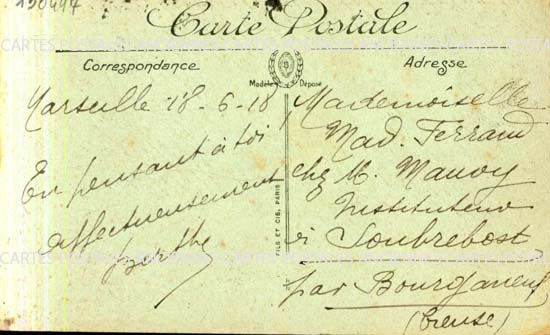 130497
Carte Postale
Correspondance
Adresse
Modèle Déposé
Marseille 18-6-18
En pensant à toi
affectueusement
Berthe
FILS ET CIE, PARIS
Mademoiselle
Mad. Ferrand
chez M. Mauvy
Instituteur
à Soubrebost
par Bourganeuf
(Creuse)